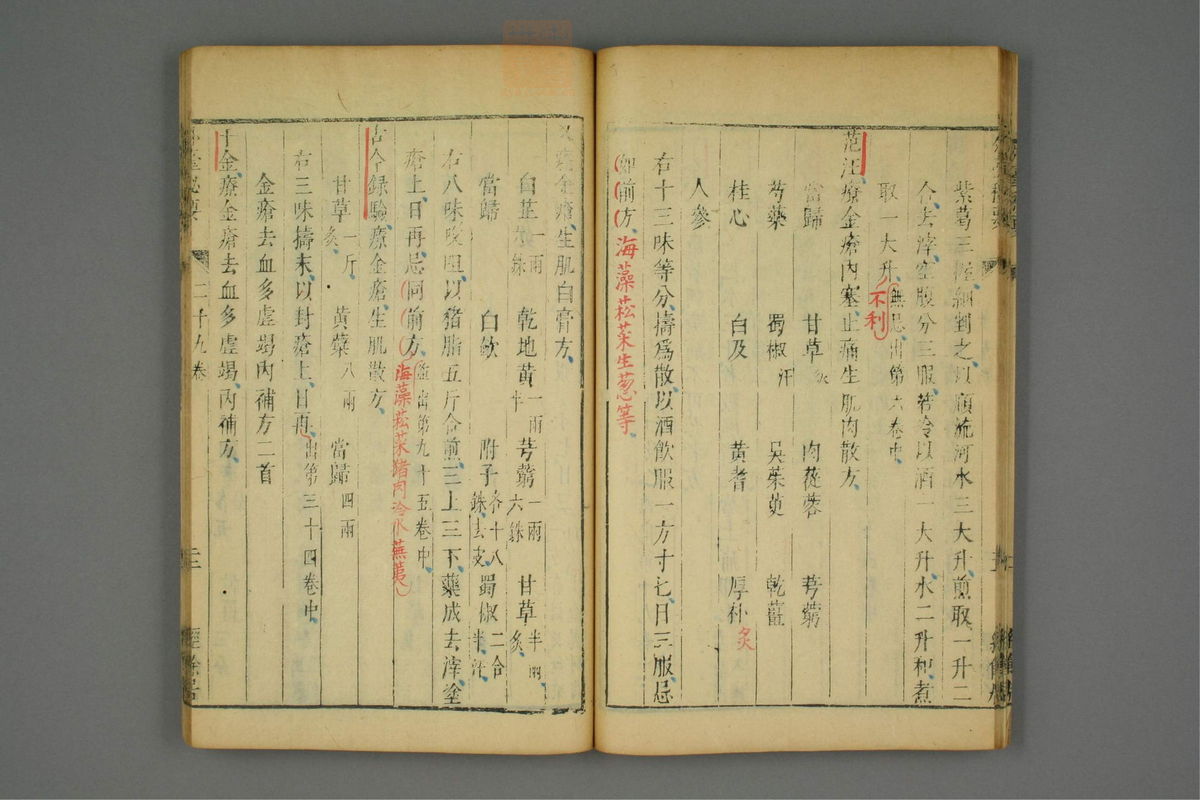 紫葛三握細剉之以順流河水三大升煎取一升二
合去滓空腹分三服若冷以酒一大升水二升和煮
取一大升無忌出第六卷中
不利
范汪療金瘡內塞止痛生肌肉散方
當歸 甘草炙 肉蓯蓉 芎藭
芍藥 蜀椒汗 吳茱萸 乾薑
桂心 白及 黃耆 厚朴炙
人參
右十三味等分擣為散以酒飲服一方寸匕日三服忌
如前方海藻菘菜生葱等
又療金瘡生肌白膏方
白芷一兩六銖 乾地黃一兩半 芎藭一兩六銖 甘草半兩炙
當歸 白歛 附子各十八銖去皮 蜀椒二合半汗
右八味㕮咀以猪脂五斤合煎三上三下藥成去滓塗
瘡上日再忌同前方並出第九十五卷中
海藻菘菜猪肉冷水蕪荑
古今録驗療金瘡生肌散方
甘草一斤炙 黃蘗八兩 當歸四兩
右三味擣末以封瘡上日再出第三十四卷中
金瘡去血多虛竭內補方二首
千金療金瘡去血多虛竭內補方
二十九卷